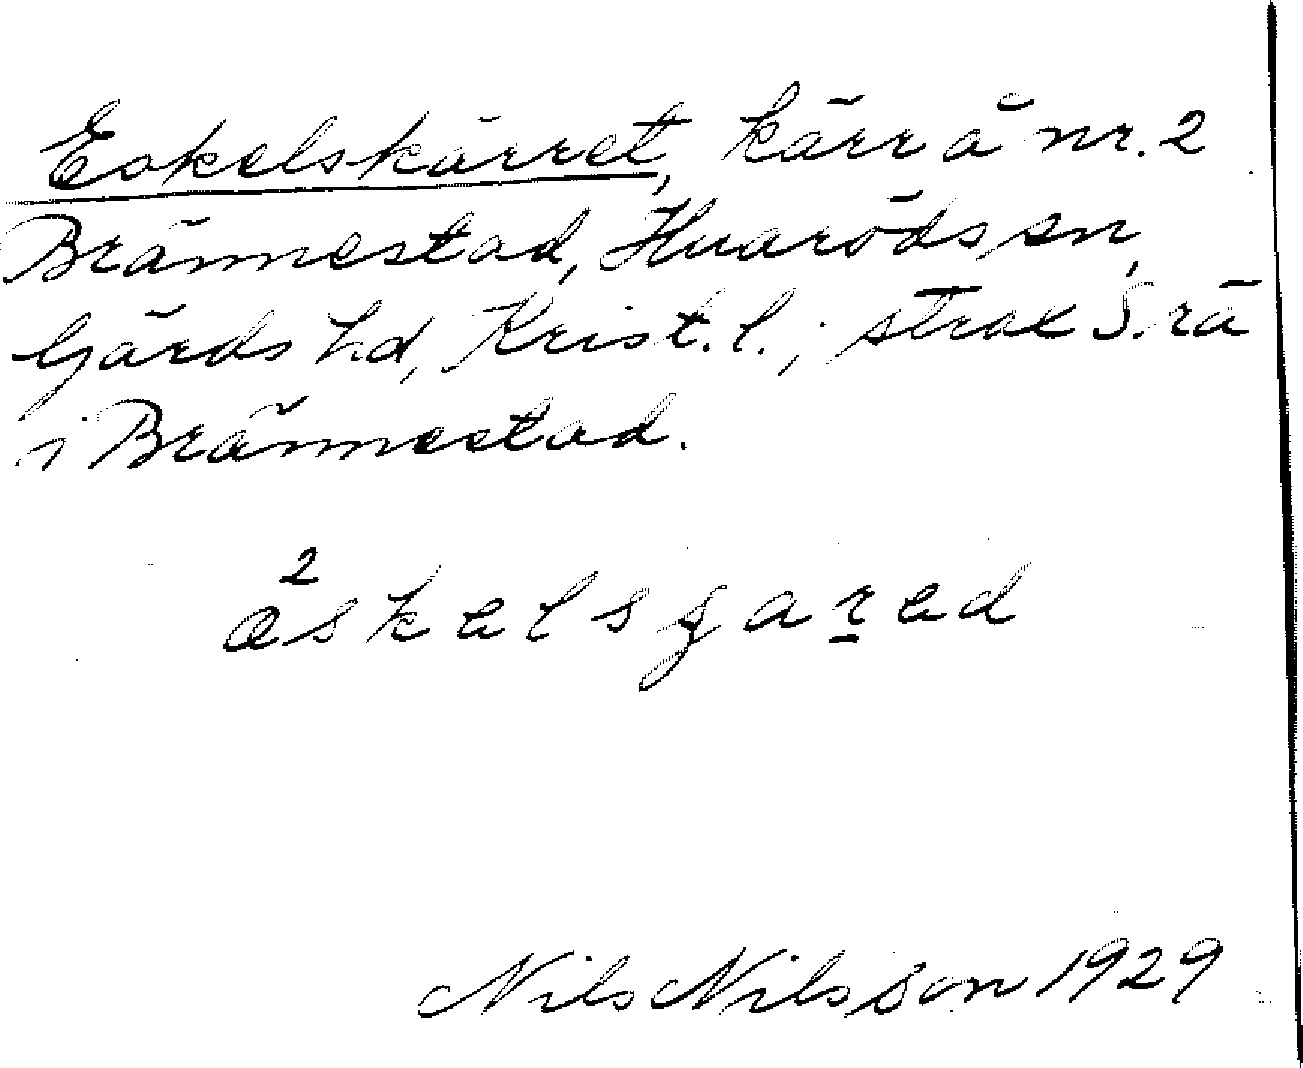 Eskelskärret, kärr å nr. 2
Brännestad, Huaröds sn,
Gärds hd, Krist. l.; strax S. rå
i Brännestad.
2
æskelsɕaṟed
Nils Nilsson 1929